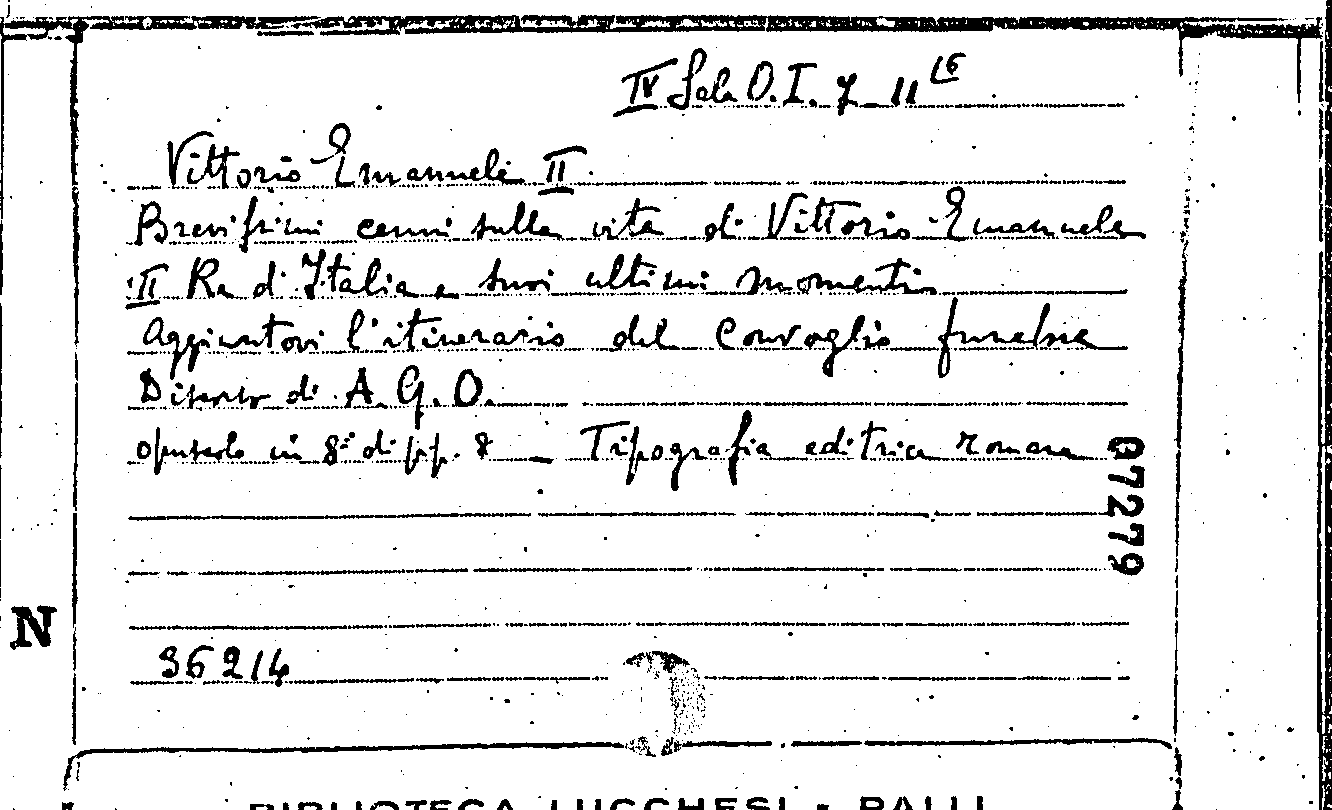 IV Sala O. I. 7 11 16
Vittorio Emanuele II.
Brevissimi cenni sulla vita di Vittorio Emanuele
II Re d'Italia e suoi ultimi momenti
Aggiuntovi l'itinerario del Convoglio funebre
di A. G. O.
opuscolo in 8° di pp. 8 — Tipografia editrice romana
07279
N
36214
BIBLIOTECA LUCCHESI - PALLI